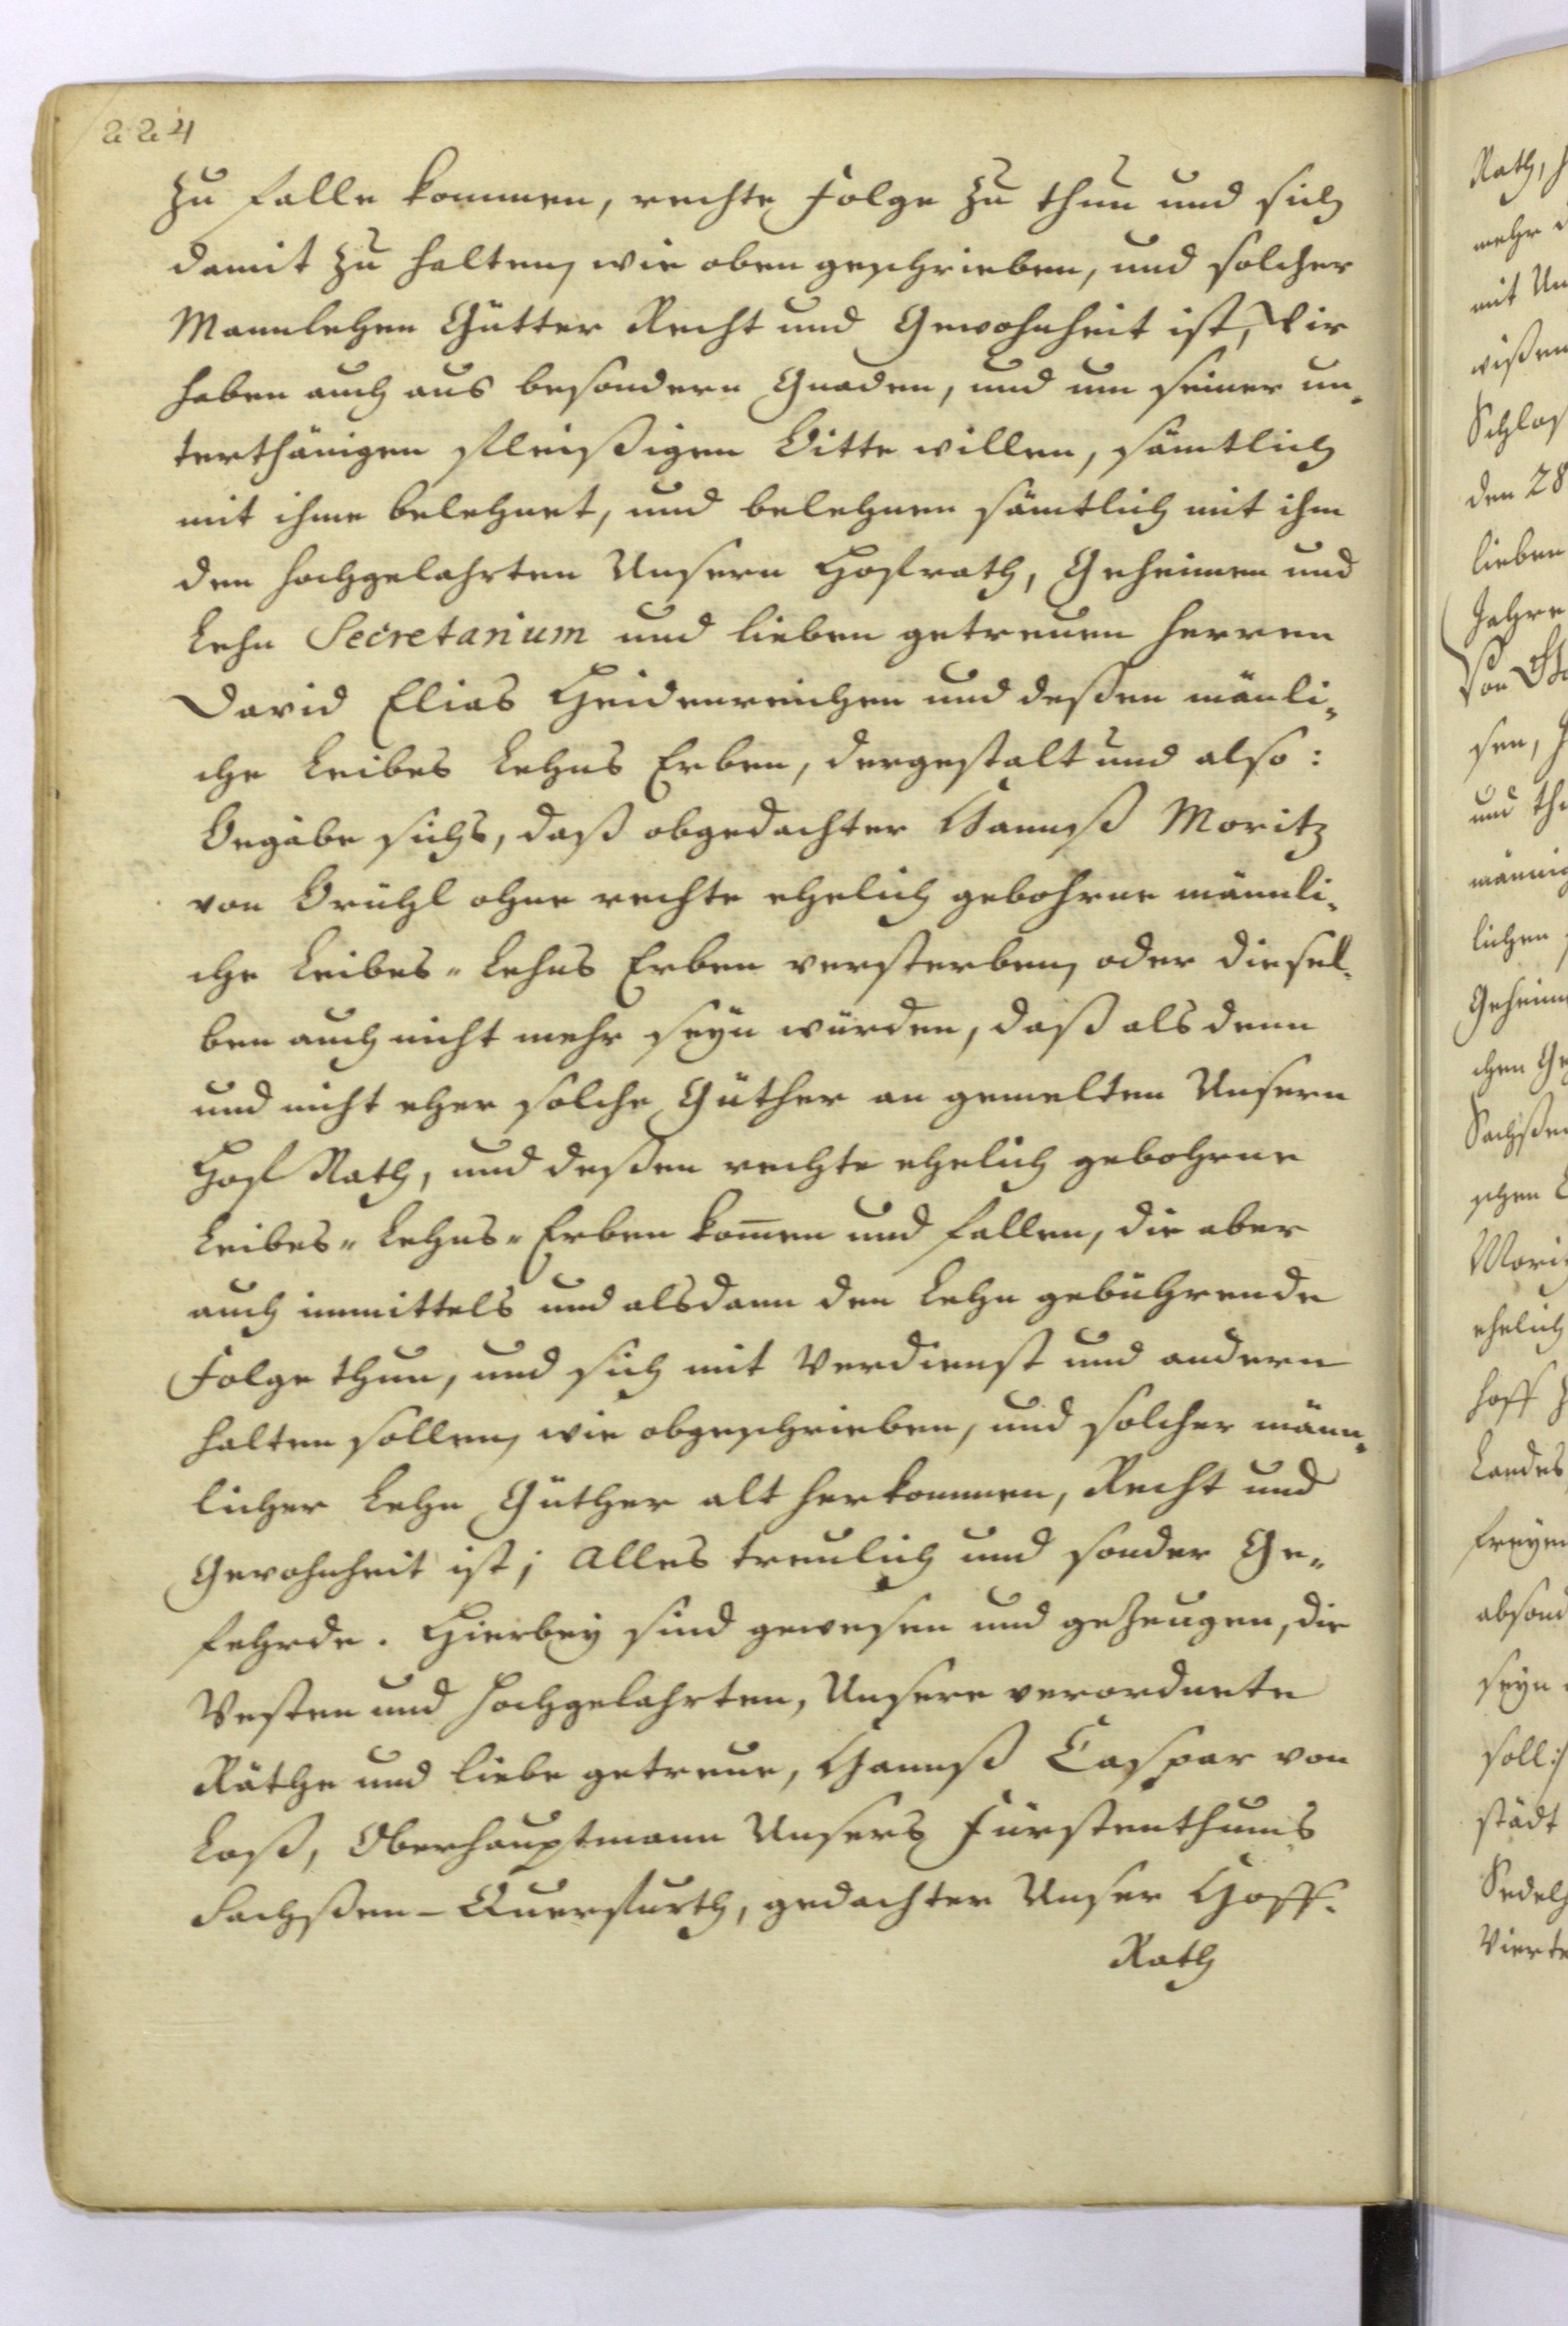 224
zu falle kommen, rechte Folge zu thun und sich
damit zu halten, wie oben geschrieben, und solcher
Mannlehen Gütter Recht und Gewohnheit ist, Wir
haben auch aus besondern Gnaden, und um seiner un-
terthänigen fleißigen Bitte willen, sämtlich
mit ihme belehnet, und belehnen sämtlich mit ihm
den hochgelahrten Unsern Hofrath, Geheimen und
Lehn Secretarium und lieben getreuen Herren
David Elias Heidenreichen und deßen mänli-
che Leibes Lehns Erben, dergestalt und also:
Begäbe sichs, daß obgedachter Hannß Moritz
von Brühl ohne rechte ehelich gebohrne männli-
che Leibes- Lehns Erben versterben, oder diesel-
ben auch nicht mehr seyn würden, daß als denn
und nicht eher solche Güther an gemelten Unsern
Hof Rath, und deßen rechte ehelich gebohrne
Leibes- Lehns- Erben kom̄en und fallen, die aber
auch immittels und alsdann den Lehn gebührende
Folge thun, und sich mit Verdienst und andern
halten sollen, wie obgeschrieben, und solcher männ-
licher Lehn Güther alt herkommen, Recht und
Gewohnheit ist; Alles treulich und sonder Ge-
fehrde. Hierbey sind gewesen und gezeugen, die
Vesten und Hochgelahrten, Unsere verordnete
Räthe und liebe getreue, Hannß Caspar von
Loß, Oberhauptmann Unsers Fürstenthums
Sachßen-Querfurth, gedachter Unser Hoff-
Rath
Rath,
mehr
mit
wißen
Schloß
den 28
lieben
Jahre
von
sen,
und
lichen
Geheim
chen
Sachßen
schen
Mori
ehelich
hoff
Landes
freyen
absond
seyn
soll:
städt
Sedelh
Vierte